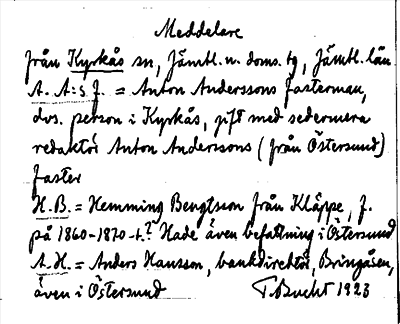 Meddelare
från Kyrkås sn, Jämtl. n. doms. tg, Jämtl. län
A. A:s f. = Anton Anderssons fasterman,
dvs. person i Kyrkås, gift med sedermera
redaktör Anton Anderssons (från Östersund)
faster
H.B. = Hemming Bengtsson från Kläppe, f.
på 1860-1870-t.? Hade även befattning i Östersund
A.H. = Anders Hansson, bankdirektör, Bringåsen,
även i Östersund T. Bucht 1923